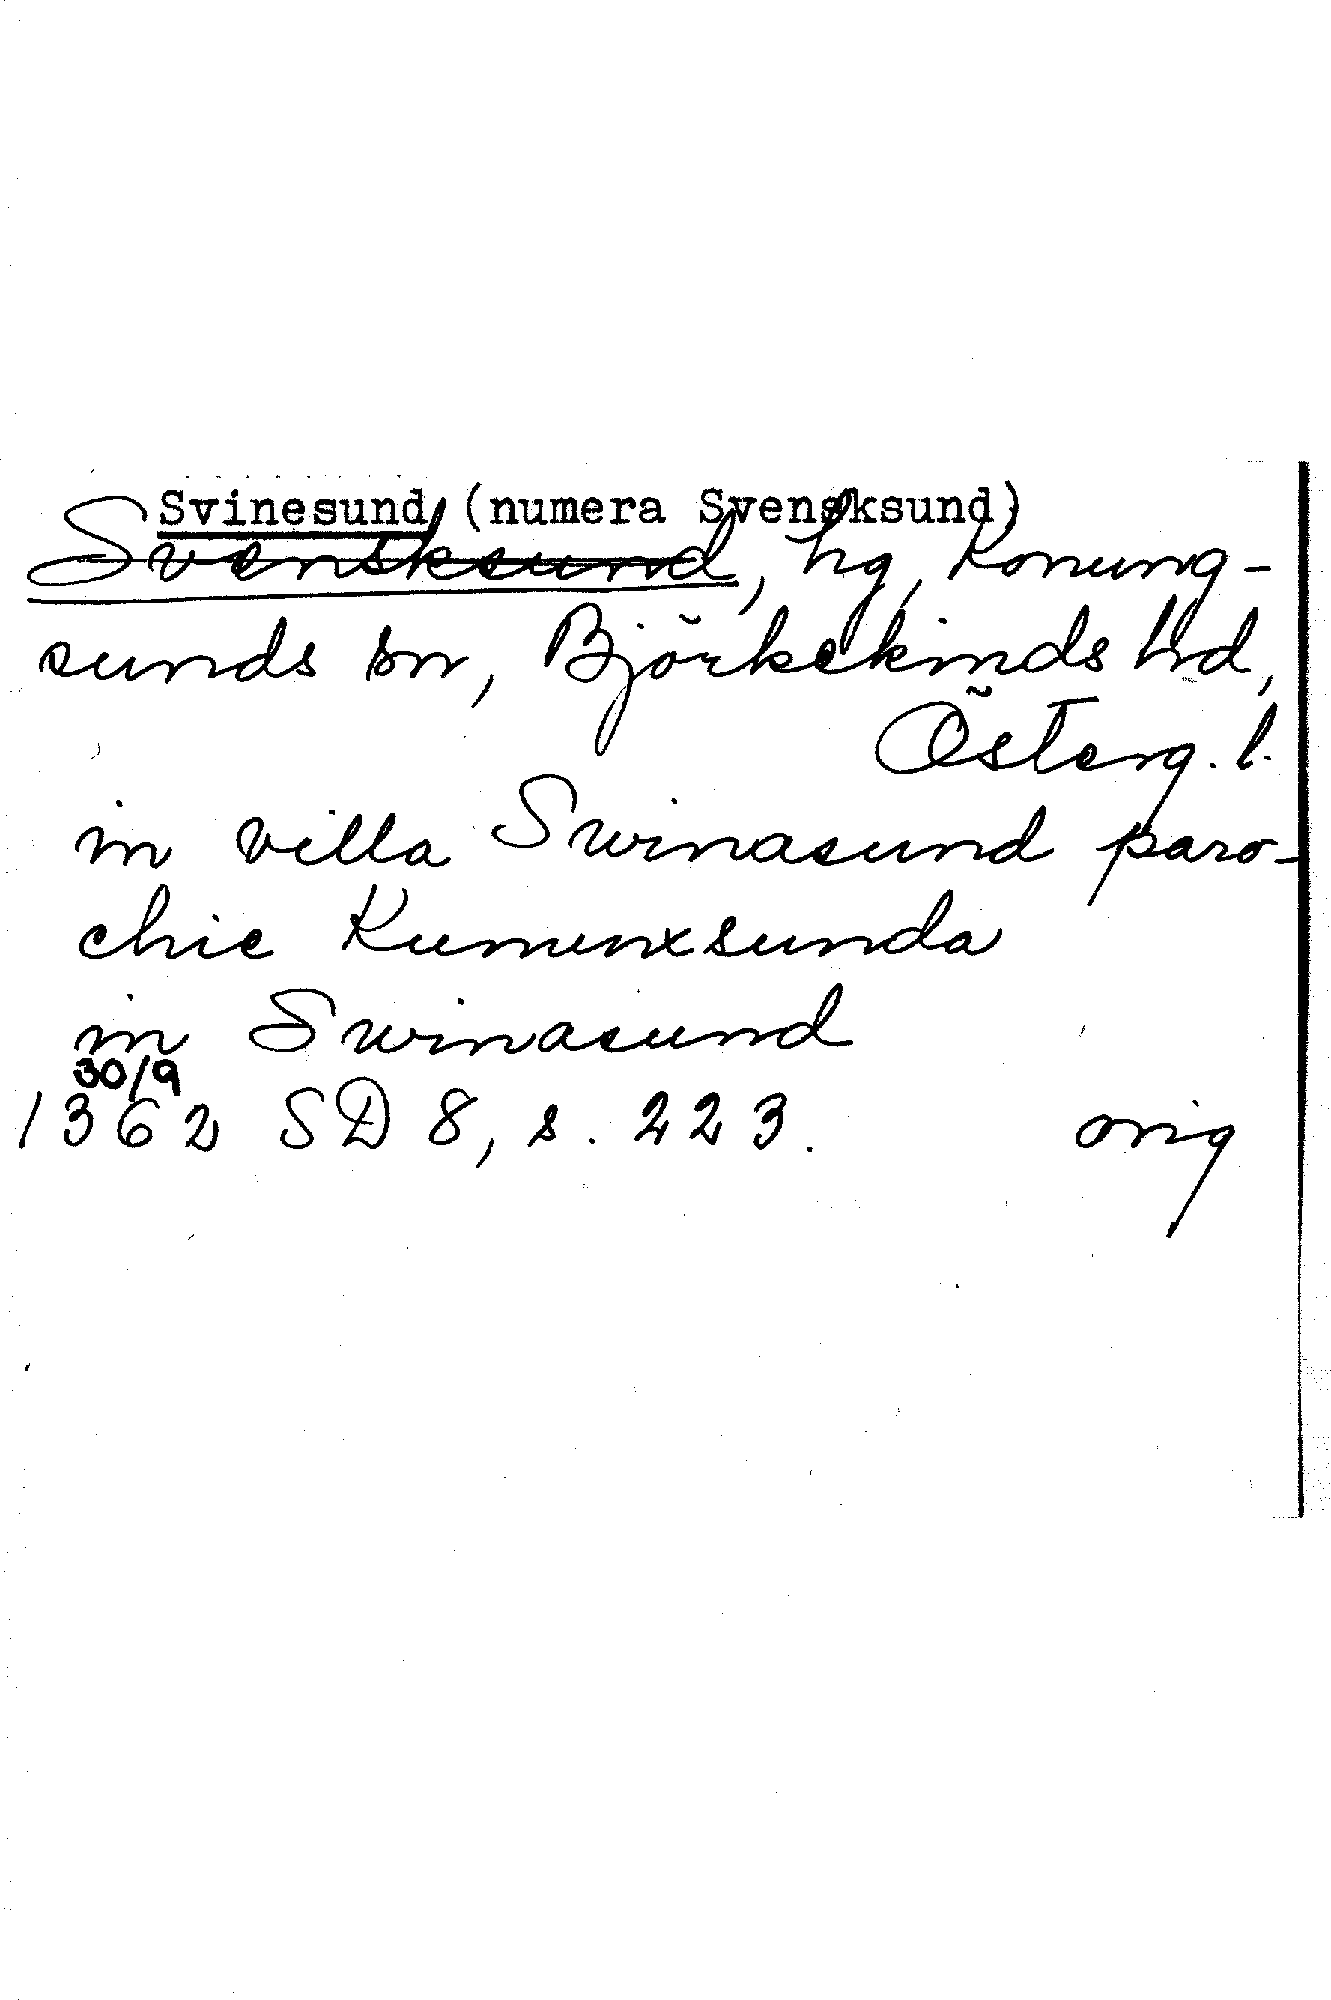 Svinesund (numera Svensksund)
Svensksund, hg, Konung-
sunds sn, Björkekinds hd,
Österg. l.
in villa Swinasund paro-
chie Kununxsunda
in Swinasund
30/9
1362 SD 8, s. 223. orig